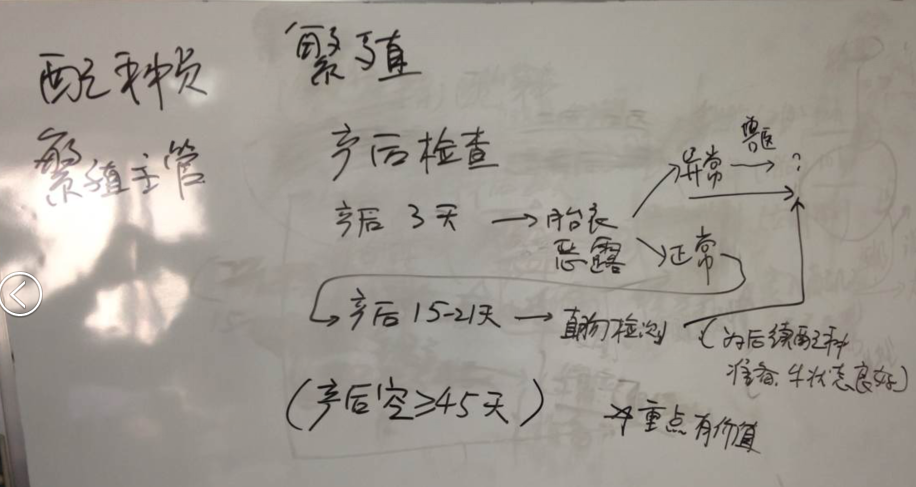 配种员
繁殖主管
繁殖
产后检查
产后 3天 → 胎衣
恶露
异常 兽医 → ?
正常
产后 15-21天 → 直肠检测
(为后续配种
准备,牛状态良好)
(产后空≥45天)
重点有价值